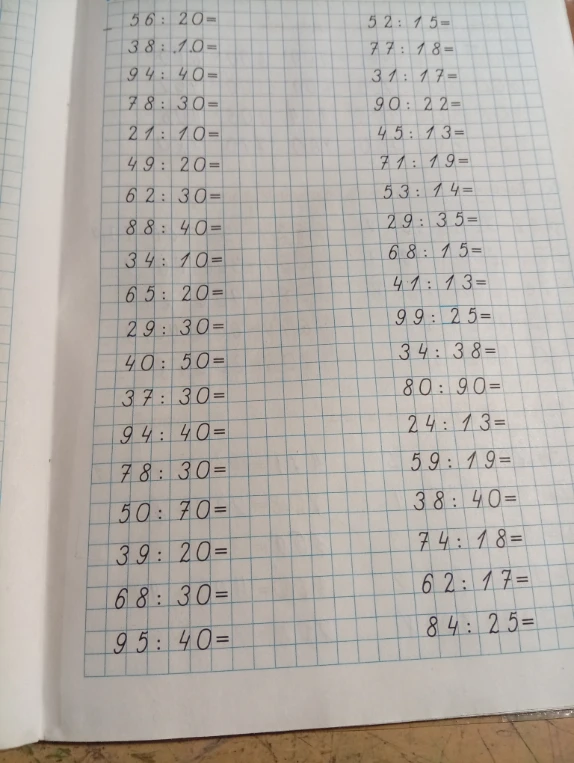 56 : 20 =
38 : 10 =
94 : 40 =
78 : 30 =
21 : 10 =
49 : 20 =
62 : 30 =
88 : 40 =
34 : 10 =
65 : 20 =
29 : 30 =
40 : 50 =
37 : 30 =
94 : 40 =
78 : 30 =
50 : 70 =
39 : 20 =
68 : 30 =
95 : 40 =
52 : 15 =
77 : 18 =
31 : 17 =
90 : 22 =
45 : 13 =
71 : 19 =
53 : 14 =
29 : 35 =
68 : 15 =
41 : 13 =
99 : 25 =
34 : 38 =
80 : 90 =
24 : 13 =
59 : 19 =
38 : 40 =
74 : 18 =
62 : 17 =
84 : 25 =